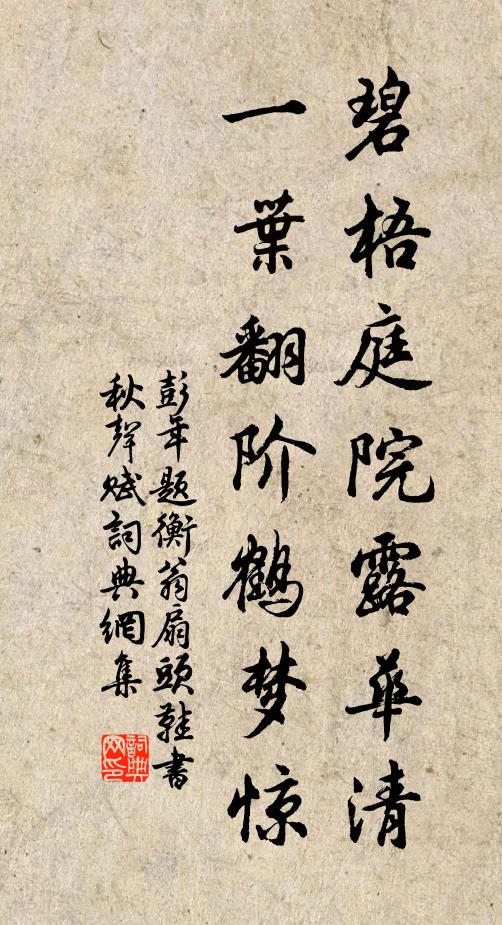 碧梧庭院露華清
一葉翻阶鹤梦惊
彭年题衡翁扇頭鞋書
秋聲赋詞典網集
詞典网印